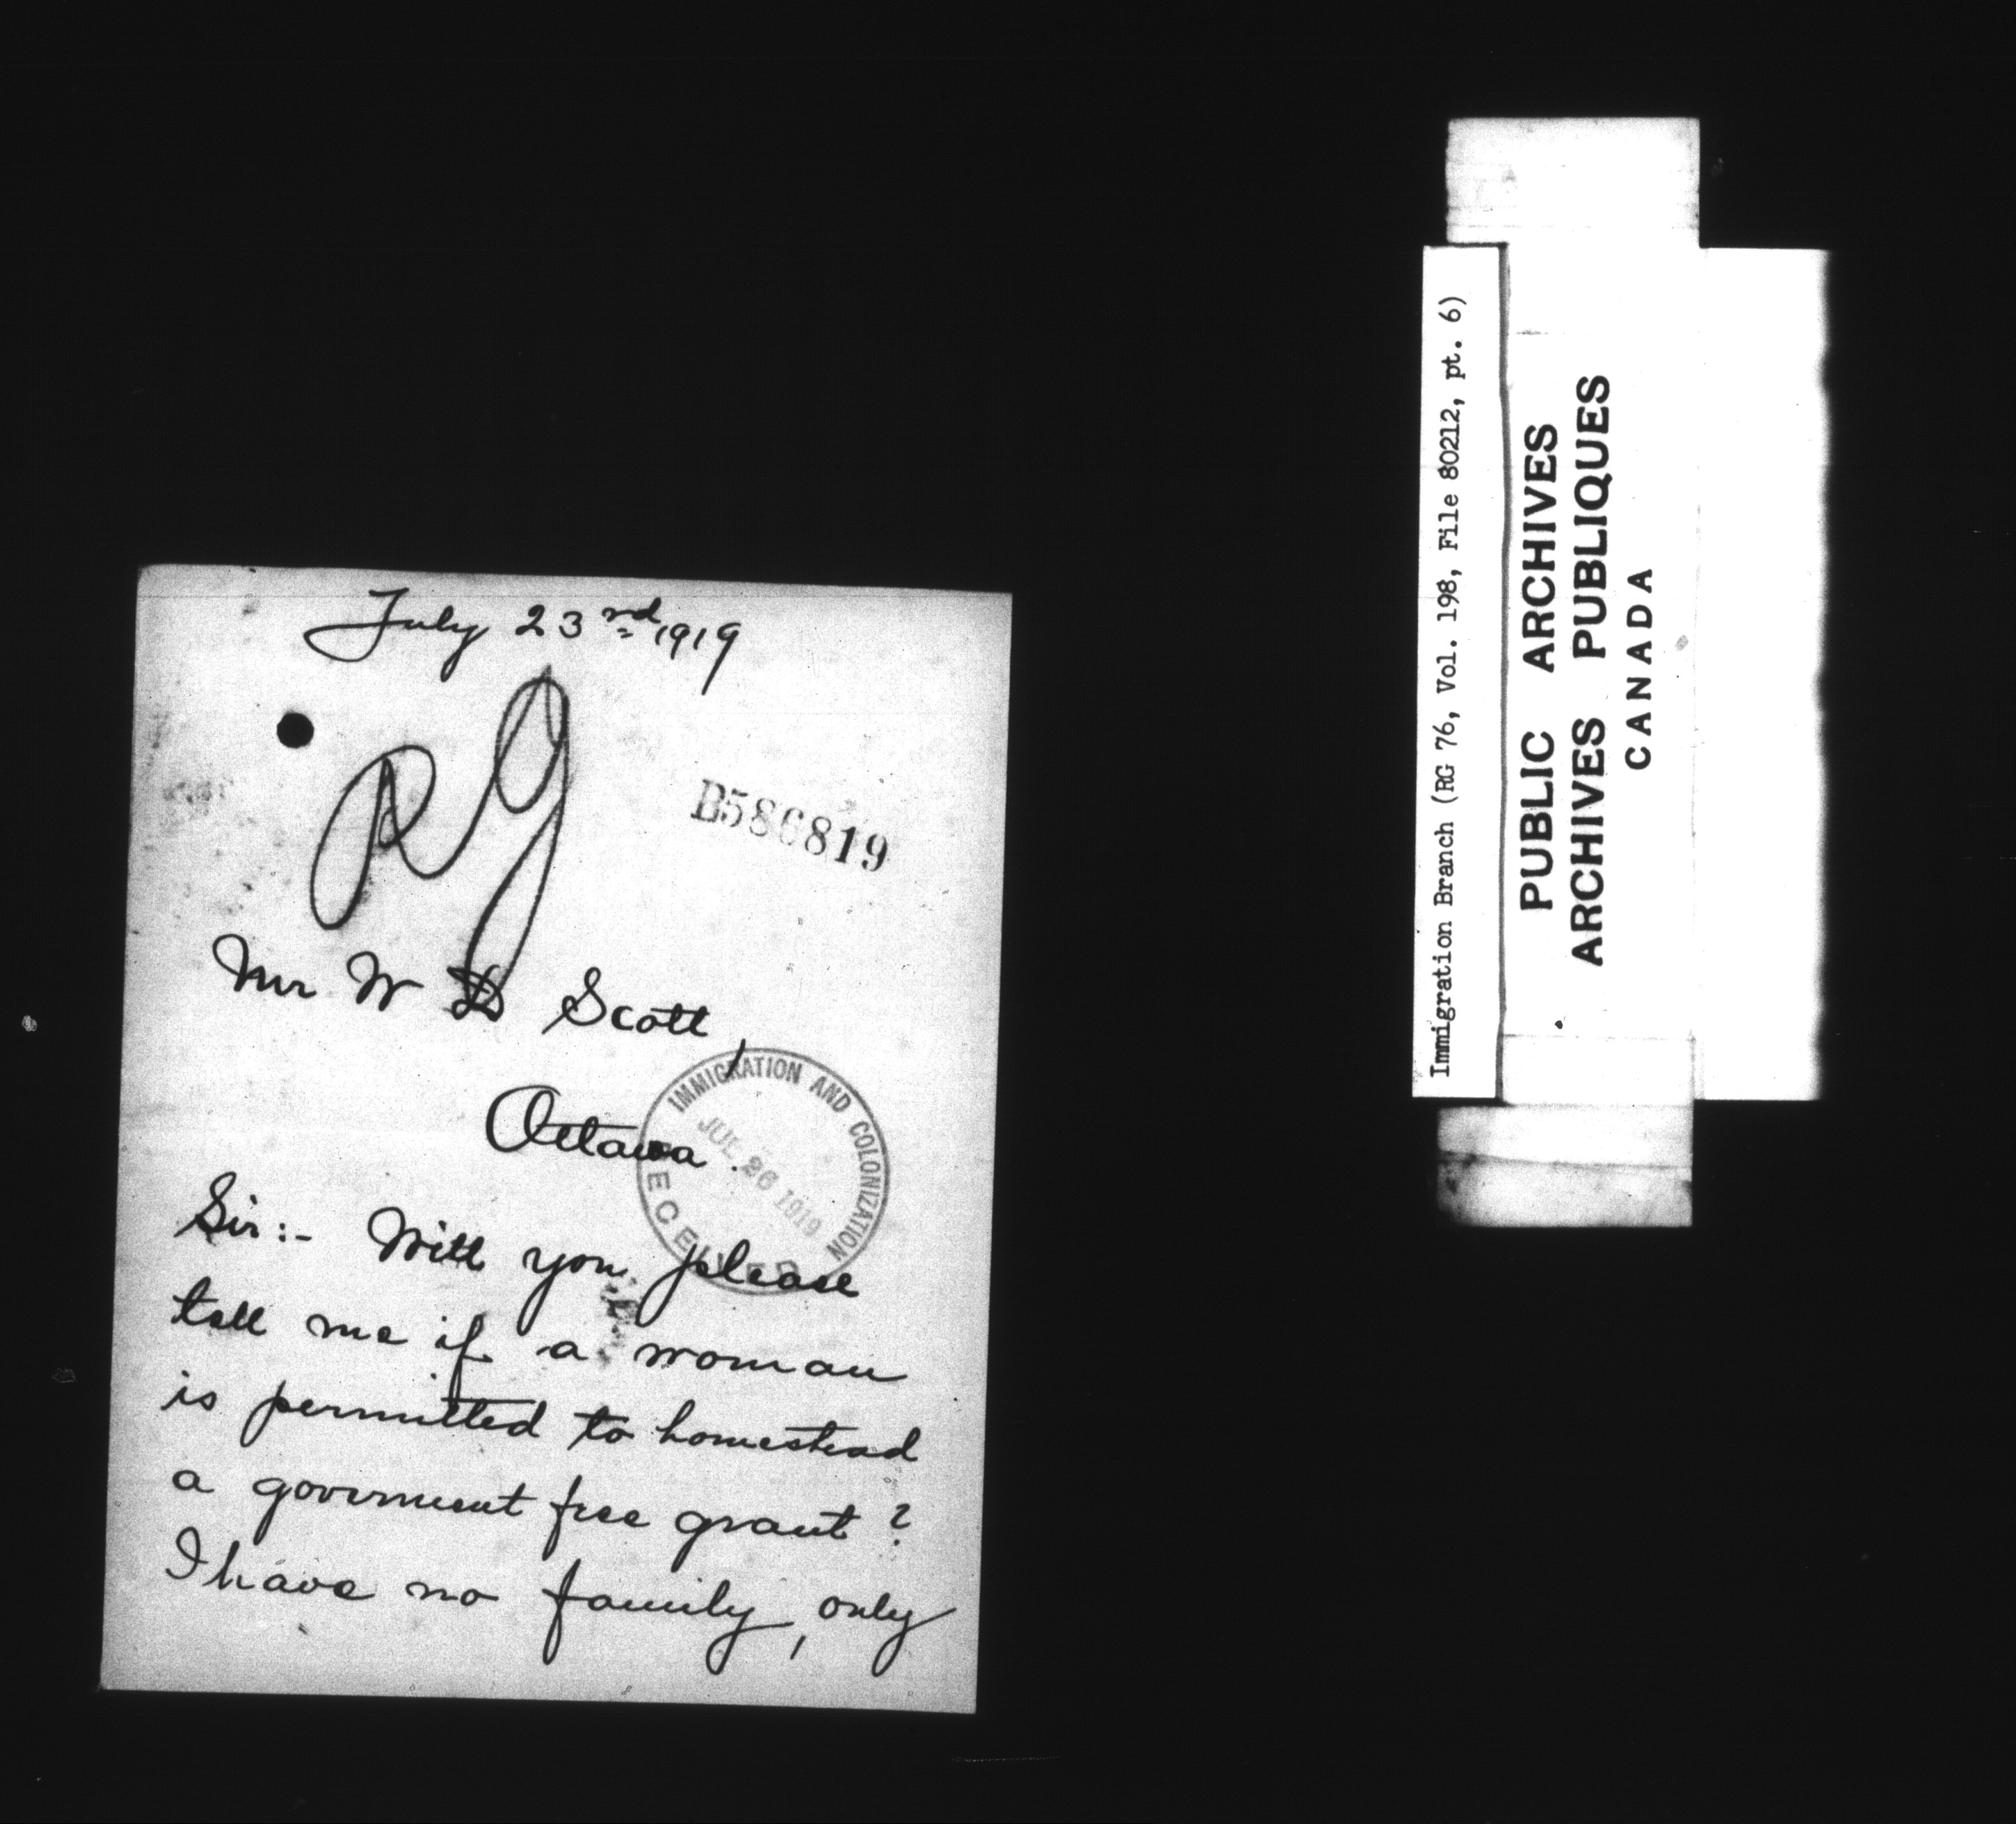 July 23rd 1919
B586819
Mr W D Scott,
Ottawa.
IMMIGRATION AND COLONIZATION
JUL 26 1919
RECEIVED
Sir:- Will you please
tell me if a woman
is permitted to homestead
a government free grant?
I have no family, only
Immigration Branch (RG 76, Vol. 198, File 80212, pt. 6)
PUBLIC ARCHIVES
ARCHIVES PUBLIQUES
CANADA